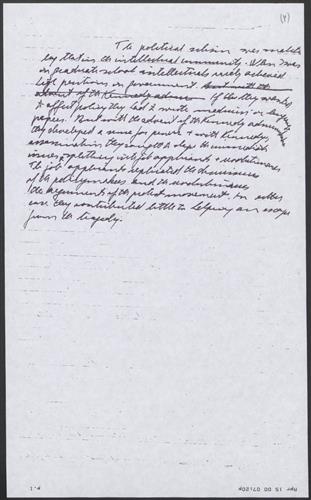 (4)
The political schism was matched
by that in the intellectual community. When I was
in graduate school intellectuals rarely achieved
high positions in government. 
If they wanted
to affect policy they had to write
papers. But with the advent of the Kennedy administration
they developed a sense for power & with Kennedy's
assassination they sought to
into job applicants & revolutionaries.
The job applicants replicated the
of the policymakers and the revolutionaries
the arguments of the protest movement. In either
case they contributed little to helping an escape
from the tragedy.
P.1
Apr 15 00 07:20p